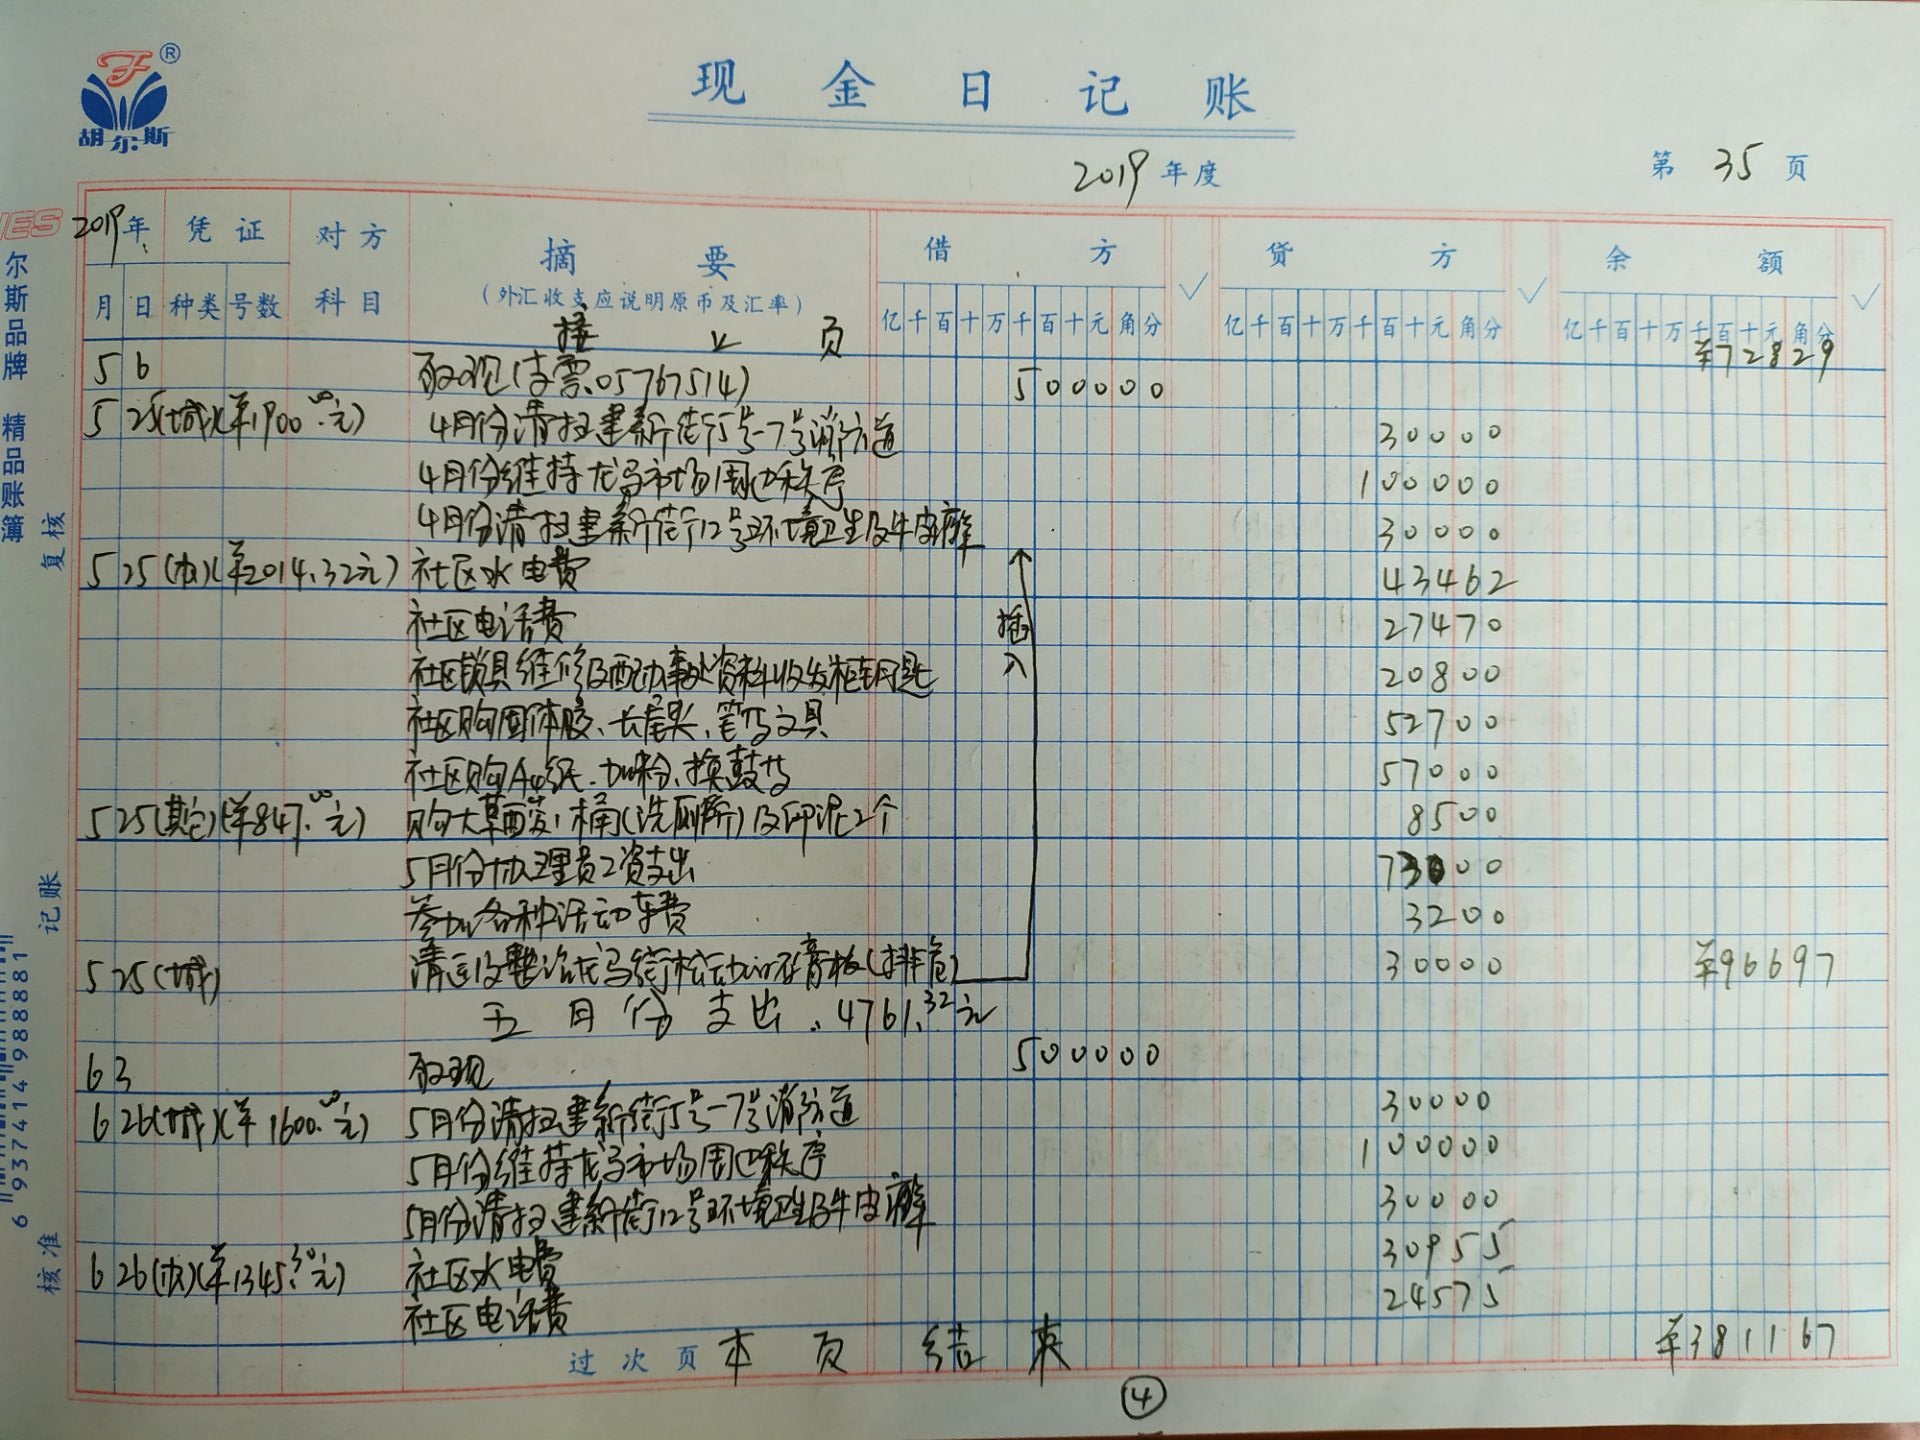 胡尔斯®
现金日记账
2019年度
第 35 页
2019年 凭证 对方 摘要 借方 ✓ 贷方 ✓ 余额 ✓
月 日 种类 号数 科目 (外汇收支应说明原币及汇率) 亿千百十万千百十元角分 亿千百十万千百十元角分 亿千百十万千百十元角分
接上页 ¥72829
5 6 取现(支票.05767514) 500000
5 25(城)(¥1900.00元) 4月份清扫建新街5号-7号消防道 30000
4月份维持龙马市场周边秩序 100000
4月份清扫建新街12号环境卫生及牛皮癣 30000
5 25(办)(¥2014.32元) 社区水电费 43462
社区电话费 27470
插入
社区锁具维修及配办事处资料收发柜钥匙 20800
社区购固体胶、长尾夹、笔等文具 52700
社区购A4纸、加粉、换鼓等 57000
5 25(其它)(¥847.00元) 购大草酸、桶(洗厕所)及印泥2个 8500
5月份协理员工资支出 73000
参加各种活动车费 3200
5 25(城) 清运及整治龙马街松动石膏板(排危) 30000 ¥96697
五月份支出:4761.32元
6 3 取现 500000
6 26(城)(¥1600.00元) 5月份清扫建新街5号-7号消防道 30000
5月份维持龙马市场周边秩序 100000
5月份清扫建新街12号环境卫生及牛皮癣 30000
6 26(办)(¥1345.30元) 社区水电费 30955
社区电话费 24575
过次页 本页结束 ¥381167
④
尔斯品牌 精品账簿
复核
记账
核准
6 937414 988881